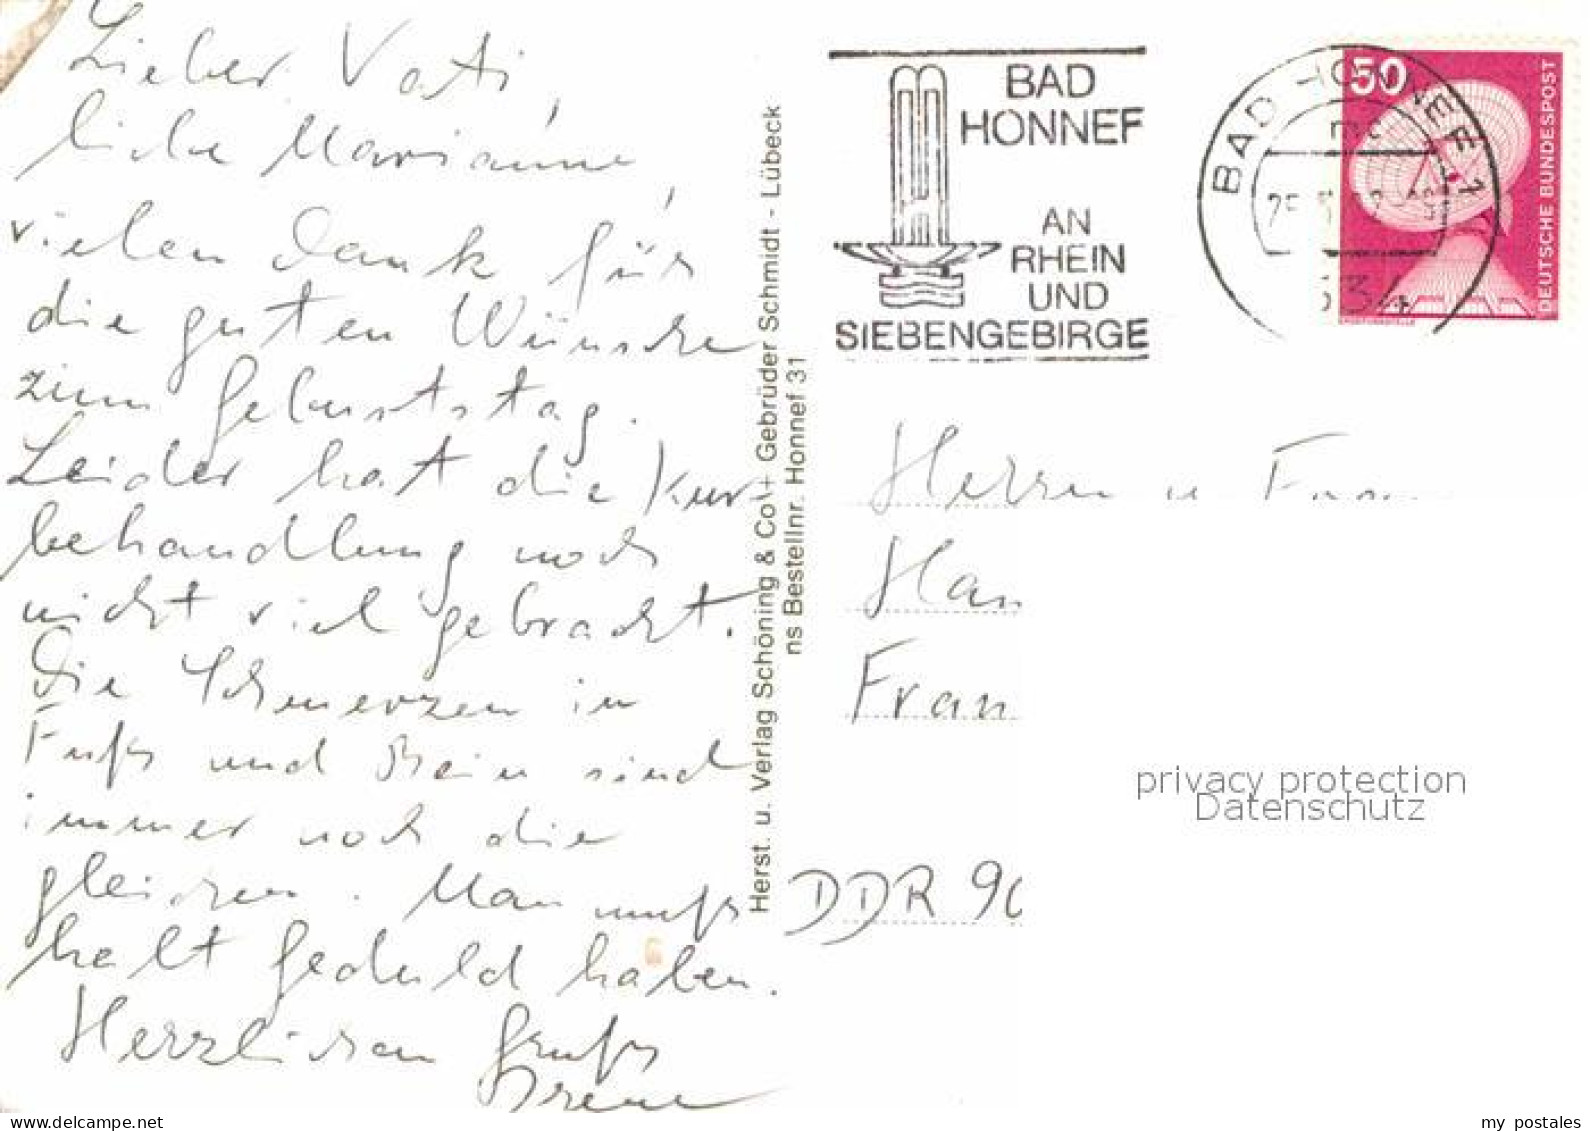 Lieber Vati,
liebe Marianne,
vielen Dank für
die guten Wünsche
zum Geburtstag.
Leider hat die Kur-
behandlung noch
nicht viel gebracht.
Die Schmerzen in
Fuß und Bein sind
immer noch die
gleichen. Man muß
halt Geduld haben.
Herzlichen Gruß
Irene
Herst. u. Verlag Schöning & Co + Gebrüder Schmidt - Lübeck
ns Bestellnr. Honnef 31
BAD
HONNEF
AN
RHEIN
UND
SIEBENGEBIRGE
BAD HONNEF 1
mc
534
50
DEUTSCHE BUNDESPOST
Herrn u
Han
Fran
DDR 90
privacy protection
Datenschutz
www.ansichtskarten-center.de
my postales